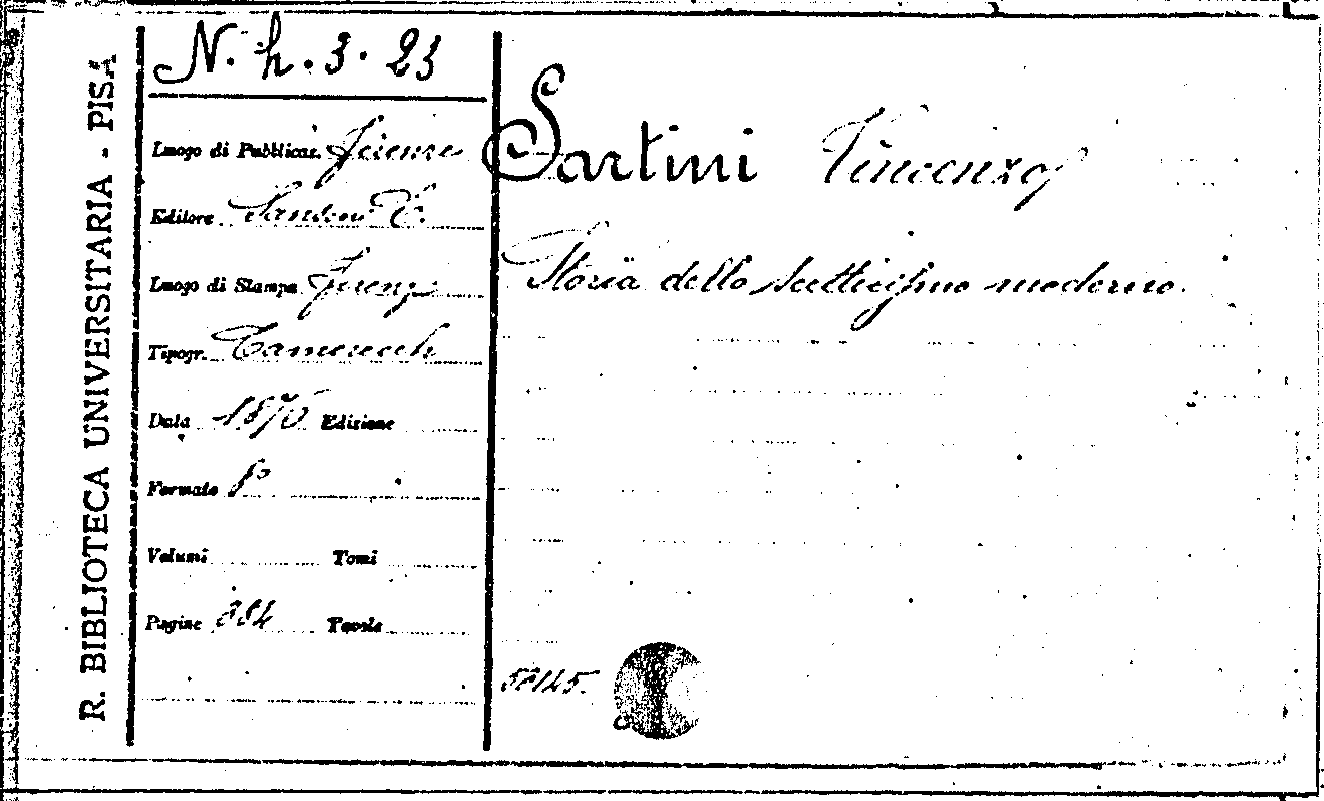 R. BIBLIOTECA UNIVERSITARIA - PISA
N. h. 3. 23
Luogo di Pubblicaz. Firenze
Editore Sansoni C.
Luogo di Stampa Firenze
Tipogr.
Data 1876 Edizione
Formato 8º
Volumi Tomi
Pagine 384 Tavole
Sartini Vincenzo
Storia dello scetticismo moderno.
58145.